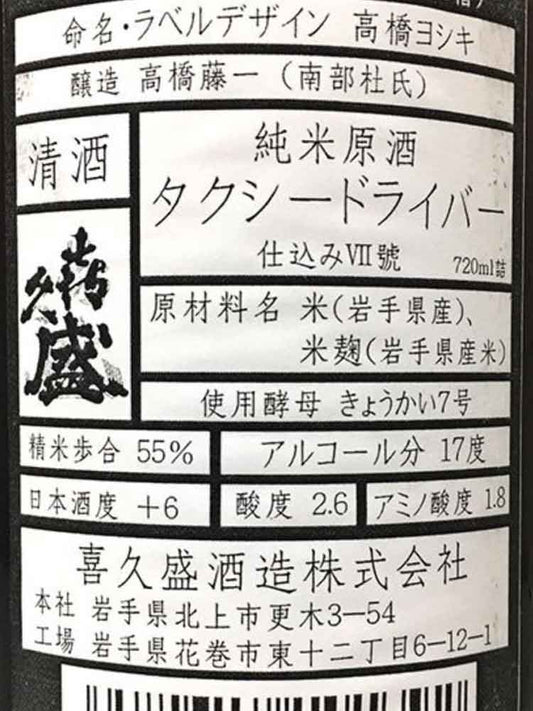 命名・ラベルデザイン 高橋ヨシキ
醸造 高橋藤一（南部杜氏）
清酒
純米原酒
タクシードライバー
仕込みⅦ號
720ml詰
喜久盛
原材料名 米（岩手県産）、
米麹（岩手県産米）
使用酵母 きょうかい7号
精米歩合 55%
アルコール分 17度
日本酒度 +6
酸度 2.6
アミノ酸度 1.8
喜久盛酒造株式会社
本社 岩手県北上市更木3-54
工場 岩手県花巻市東十二丁目6-12-1